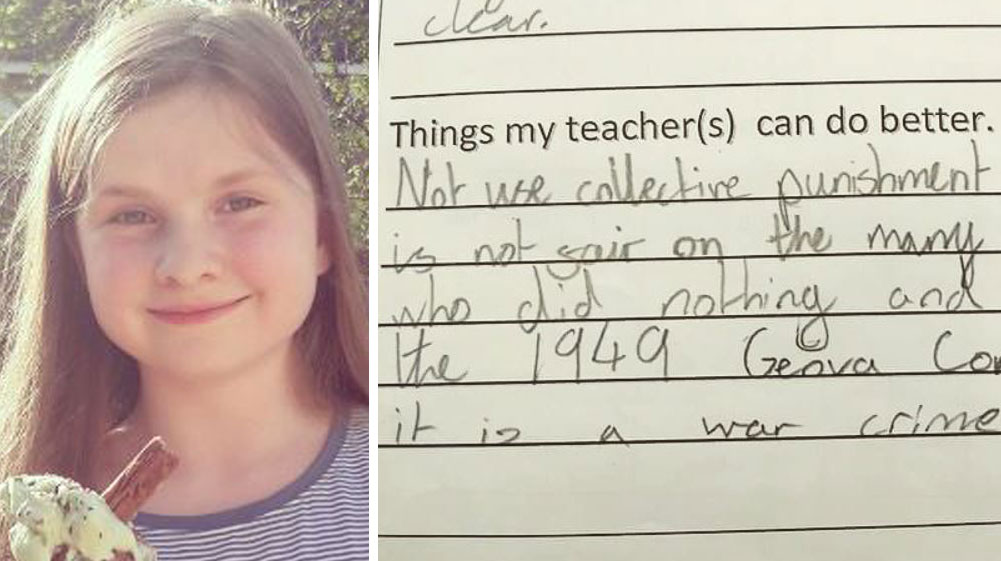 clear.
Things my teacher(s) can do better.
Not use collective punishment
is not fair on the many
who did nothing and
the 1949 Genova
it is a war crime